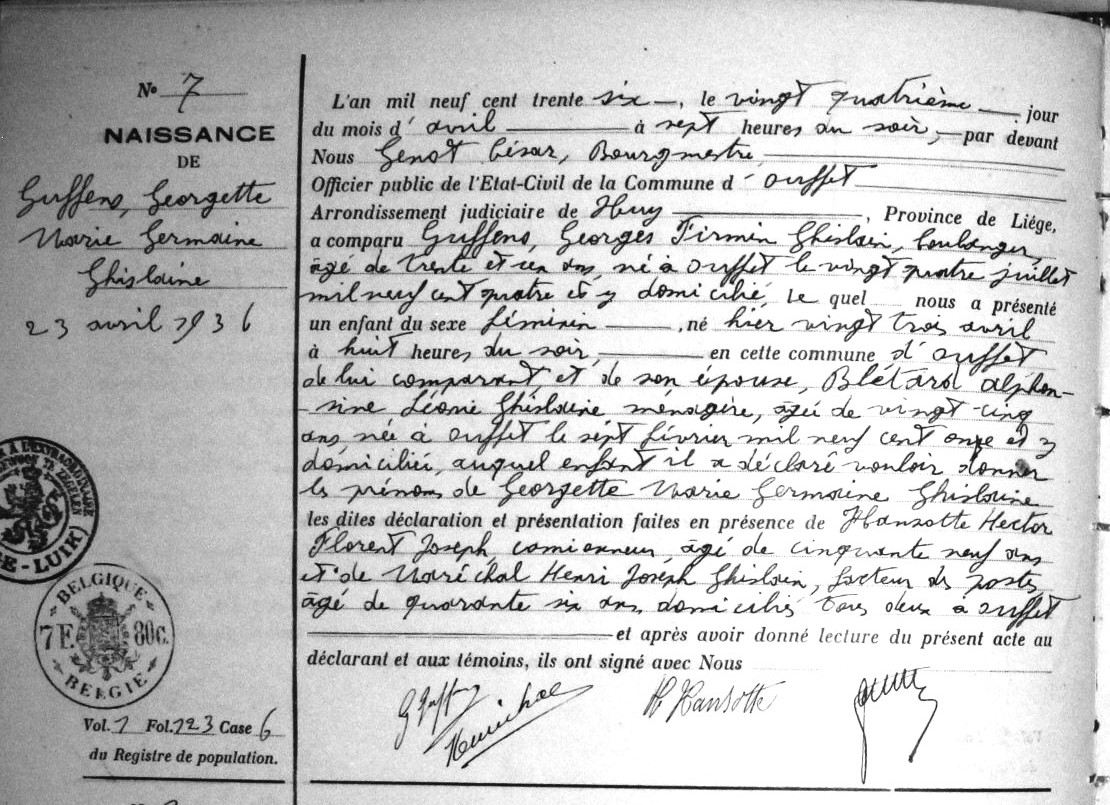 N° 7
NAISSANCE
DE
Guffens, Georgette
Marie Germaine
Ghislaine
23 avril 1936
L'an mil neuf cent trente six, le vingt quatrième jour
du mois d' avril à sept heures du soir, par devant
Nous Genot César, Bourgmestre
Officier public de l'Etat-Civil de la Commune d' Ouffet
Arrondissement judiciaire de Huy, Province de Liége,
a comparu Guffens, Georges Firmin Ghislain, boulanger,
âgé de trente et un ans, né à Ouffet le vingt quatre juillet
mil neuf cent quatre et y domicilié, Le quel nous a présenté
un enfant du sexe féminin, né hier vingt trois avril
à huit heures du soir, en cette commune d' Ouffet
de lui comparant et de son épouse, Blétard Alphon-
-sine Léonie Ghislaine ménagère, âgée de vingt-cinq
ans née à Ouffet le sept février mil neuf cent onze et y
domiciliée, auquel enfant il a déclaré vouloir donner
les prénoms de Georgette Marie Germaine Ghislaine
les dites déclaration et présentation faites en présence de Hansotte Hector
Florent Joseph, camionneur, âgé de cinquante neuf ans
et de Maréchal Henri Joseph Ghislain, facteur des postes
âgé de quarante six ans, domiciliés tous deux à Ouffet
et après avoir donné lecture du présent acte au
déclarant et aux témoins, ils ont signé avec Nous
G Guffens
Maréchal
H Hansotte
E-LUIK
BELGIQUE
7F. 80c.
BELGIE
Vol. 1 Fol. 123 Case 6
du Registre de population.